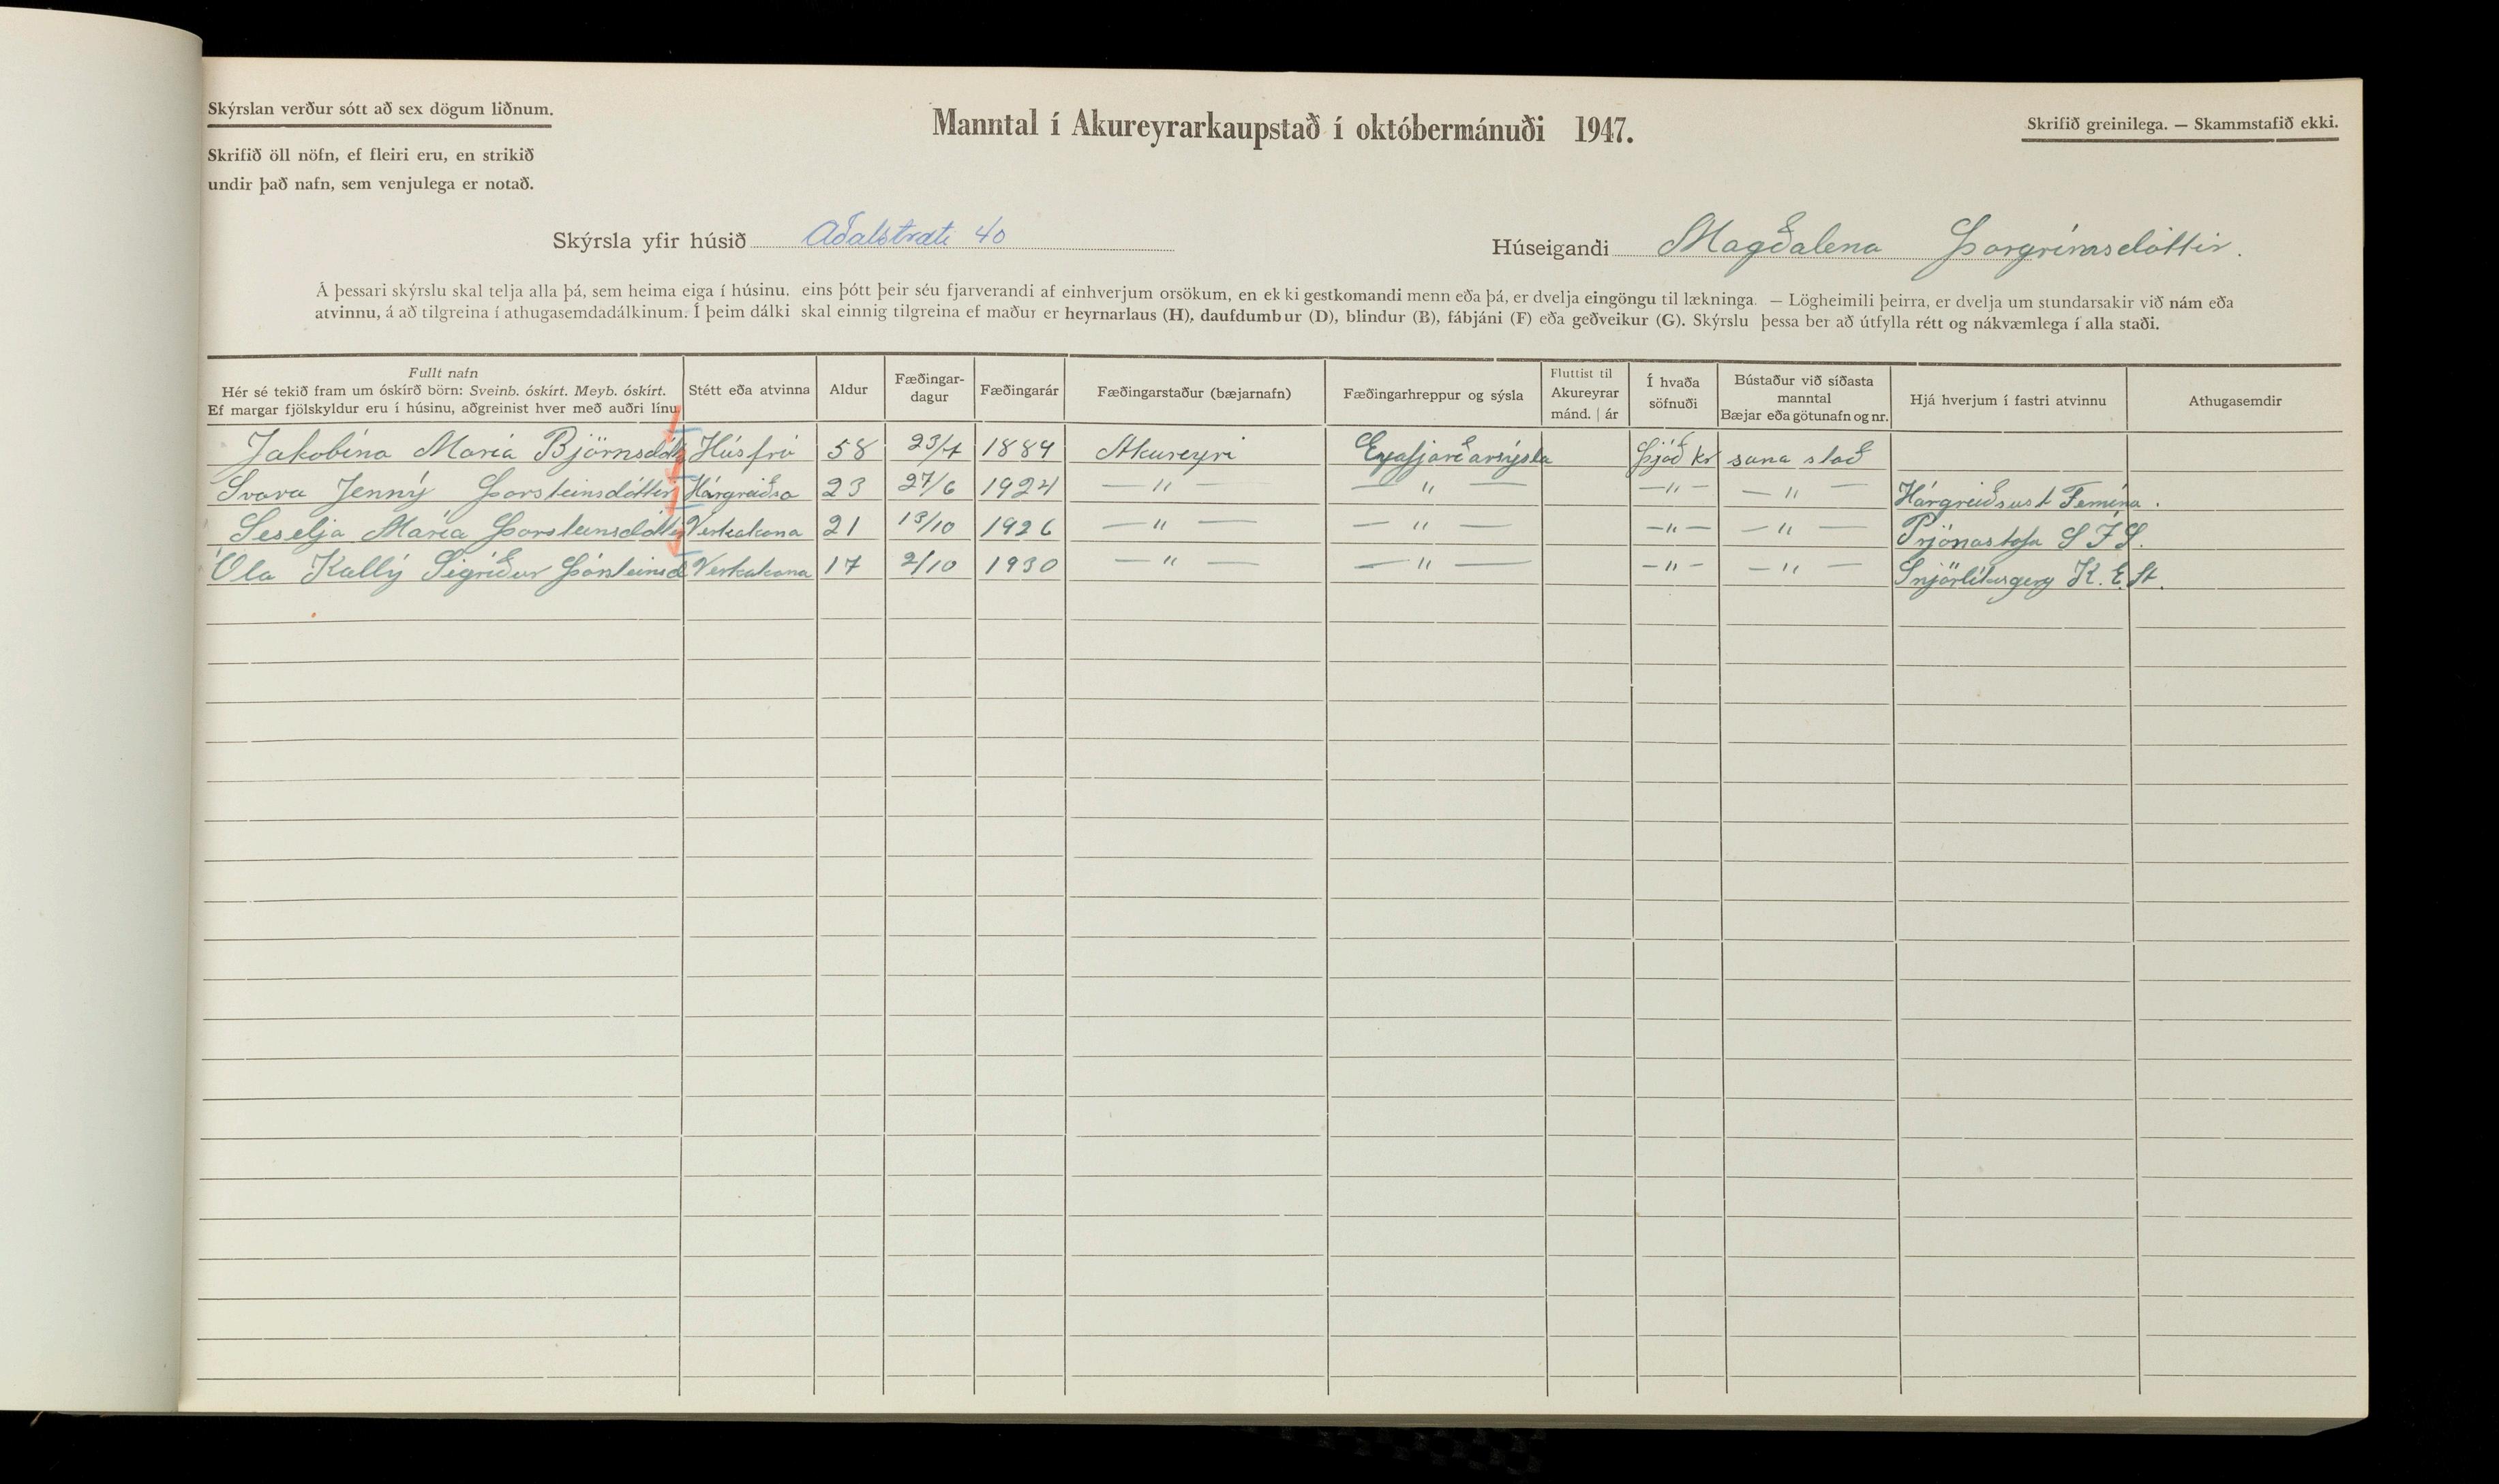 Skýrslan verður sótt að sex dögum liðnum.
Skrifið öll nöfn, ef fleiri eru, en strikið
undir það nafn, sem venjulega er notað.
Manntal í Akureyrarkaupstað í októbermánuði 1947.
Skrifið greinilega. — Skammstafið ekki.
Skýrsla yfir húsið Aðalstræti 40
Húseigandi Magðalena Þorgrímsdóttir.
Á þessari skýrslu skal telja alla þá, sem heima eiga í húsinu, eins þótt þeir séu fjarverandi af einhverjum orsökum, en ekki gestkomandi menn eða þá, er dvelja eingöngu til lækninga. — Lögheimili þeirra, er dvelja um stundarsakir við nám eða
atvinnu, á að tilgreina í athugasemdadálkinum. Í þeim dálki skal einnig tilgreina ef maður er heyrnarlaus (H), daufdumbur (D), blindur (B), fábjáni (F) eða geðveikur (G). Skýrslu þessa ber að útfylla rétt og nákvæmlega í alla staði.
Fullt nafn
Hér sé tekið fram um óskírð börn: Sveinb. óskírt. Meyb. óskírt.
Ef margar fjölskyldur eru í húsinu, aðgreinist hver með auðri línu.
Stétt eða atvinna
Aldur
Fæðingar-
dagur
Fæðingarár
Fæðingarstaður (bæjarnafn)
Fæðingarhreppur og sýsla
Fluttist til
Akureyrar
mánd. | ár
Í hvaða
söfnuði
Bústaður við síðasta
manntal
Bæjar eða götunafn og nr.
Hjá hverjum í fastri atvinnu
Athugasemdir
Jakobína María Björnsdótt Húsfrú 58 23/4 1889 Akureyri Eyafjarðarsýsla Þjóð kr sama stað
Svava Jenný Þorsteinsdóttir Hárgreiðsa 23 27/6 1924 — " — — " — — " — — " — Hárgreiðsust Femína.
Seselja María Þorsteinsdóttir Verkakona 21 13/10 1926 — " — — " — — " — — " — Prjónastofa S Í S.
Óla Kallý Sigríður Þórsteinsd Verkakona 17 2/10 1930 — " — — " — — " — — " — Smjörlíkisgerg K. E. A.